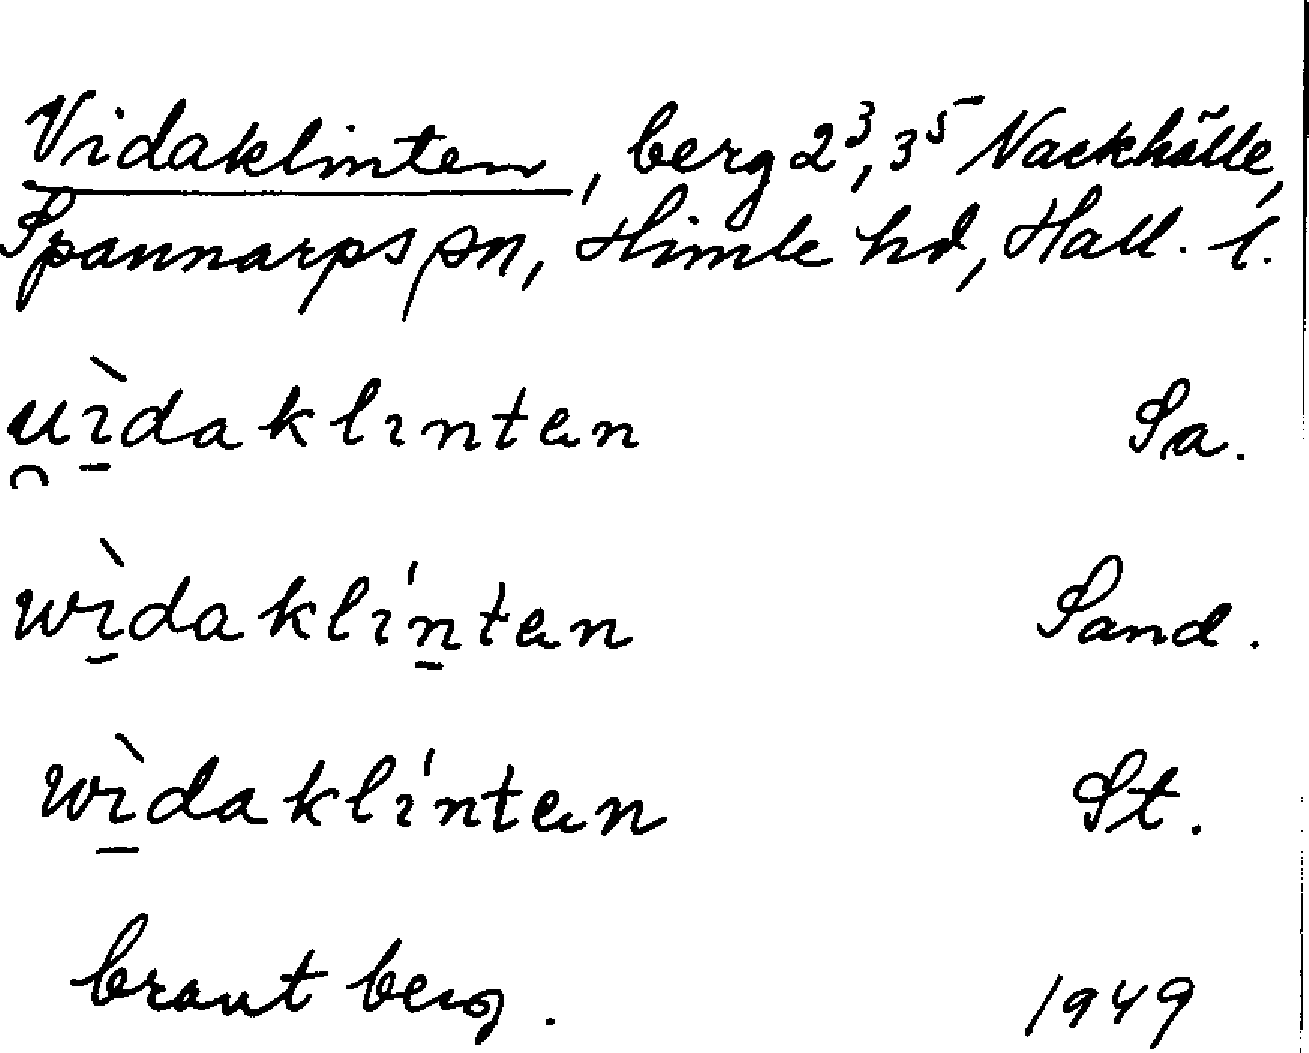 Vidaklinten, berg 2³, 3⁵ Nackhälle,
Spannarps sn, Himle hd, Hall. l.
u̯ì̱daklınten Sa.
wì̱daklı'n̠ten Sand.
wì̱daklı'nten St.
brant berg. 1949